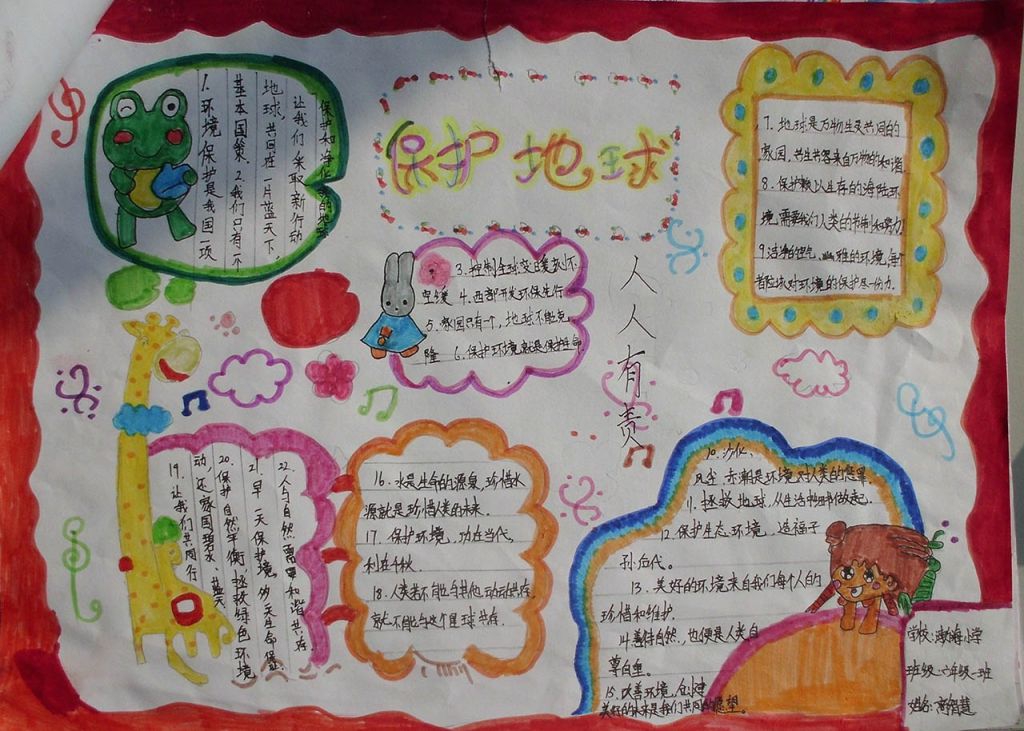 保护地球
人人有责
保护和净化
让我们采取新行动
地球,共同在一片蓝天下,
基本国策. 2.我们只有一个
1.环境保护是我国一项
3.控制全球变暖
4.西部开发环保先行
5.家园只有一个,地球不能克
隆 6.保护环境就是保护生命
7.地球是万物生灵共同的
家园,共生共容来自万物的和谐
8.保护赖以生存的海陆环
境,需要我们人类的节制和努力
9.洁净的空气,雅的环境,每个
都应该对环境的保护尽一份力.
10.沙化、
风尘、赤潮是环境对人类的惩罪
11.拯救地球,从生活中的小事做起.
12.保护生态环境,造福子
孙后代。
13.美好的环境来自我们每个人的
珍惜和维护.
14.善待自然,也便是人类自
尊自重。
15.改善环境,创建
美好的未来是我们共同的愿望。
16.水是生命的源泉,珍惜水
源就是珍惜人类的未来.
17.保护环境,功在当代,
利在千秋
18.人类若不能与其他动物共存.
就不能与这个星球共存.
22.人与自然需要和谐共存.
21.早一天保护环境,多
20.保护自然平衡,拯救绿色环境
动,还家园碧水、蓝天
19.让我们共同行
学校:渤海小学
班级:六年级一班
姓名:智慧